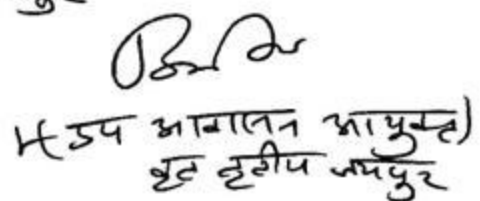 (उप आवासन आयुक्त)
वृत तृतीय जयपुर